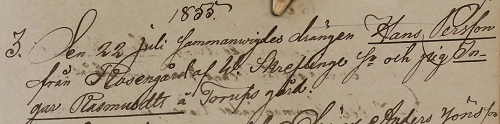 1855.
3. Den 22 juli sammanwigdes drängen Hans Persson
från Rosengård af W. Skreflinge Sn och pig In-
gar Rasmusdt å Torups gård.
Anders Jöns